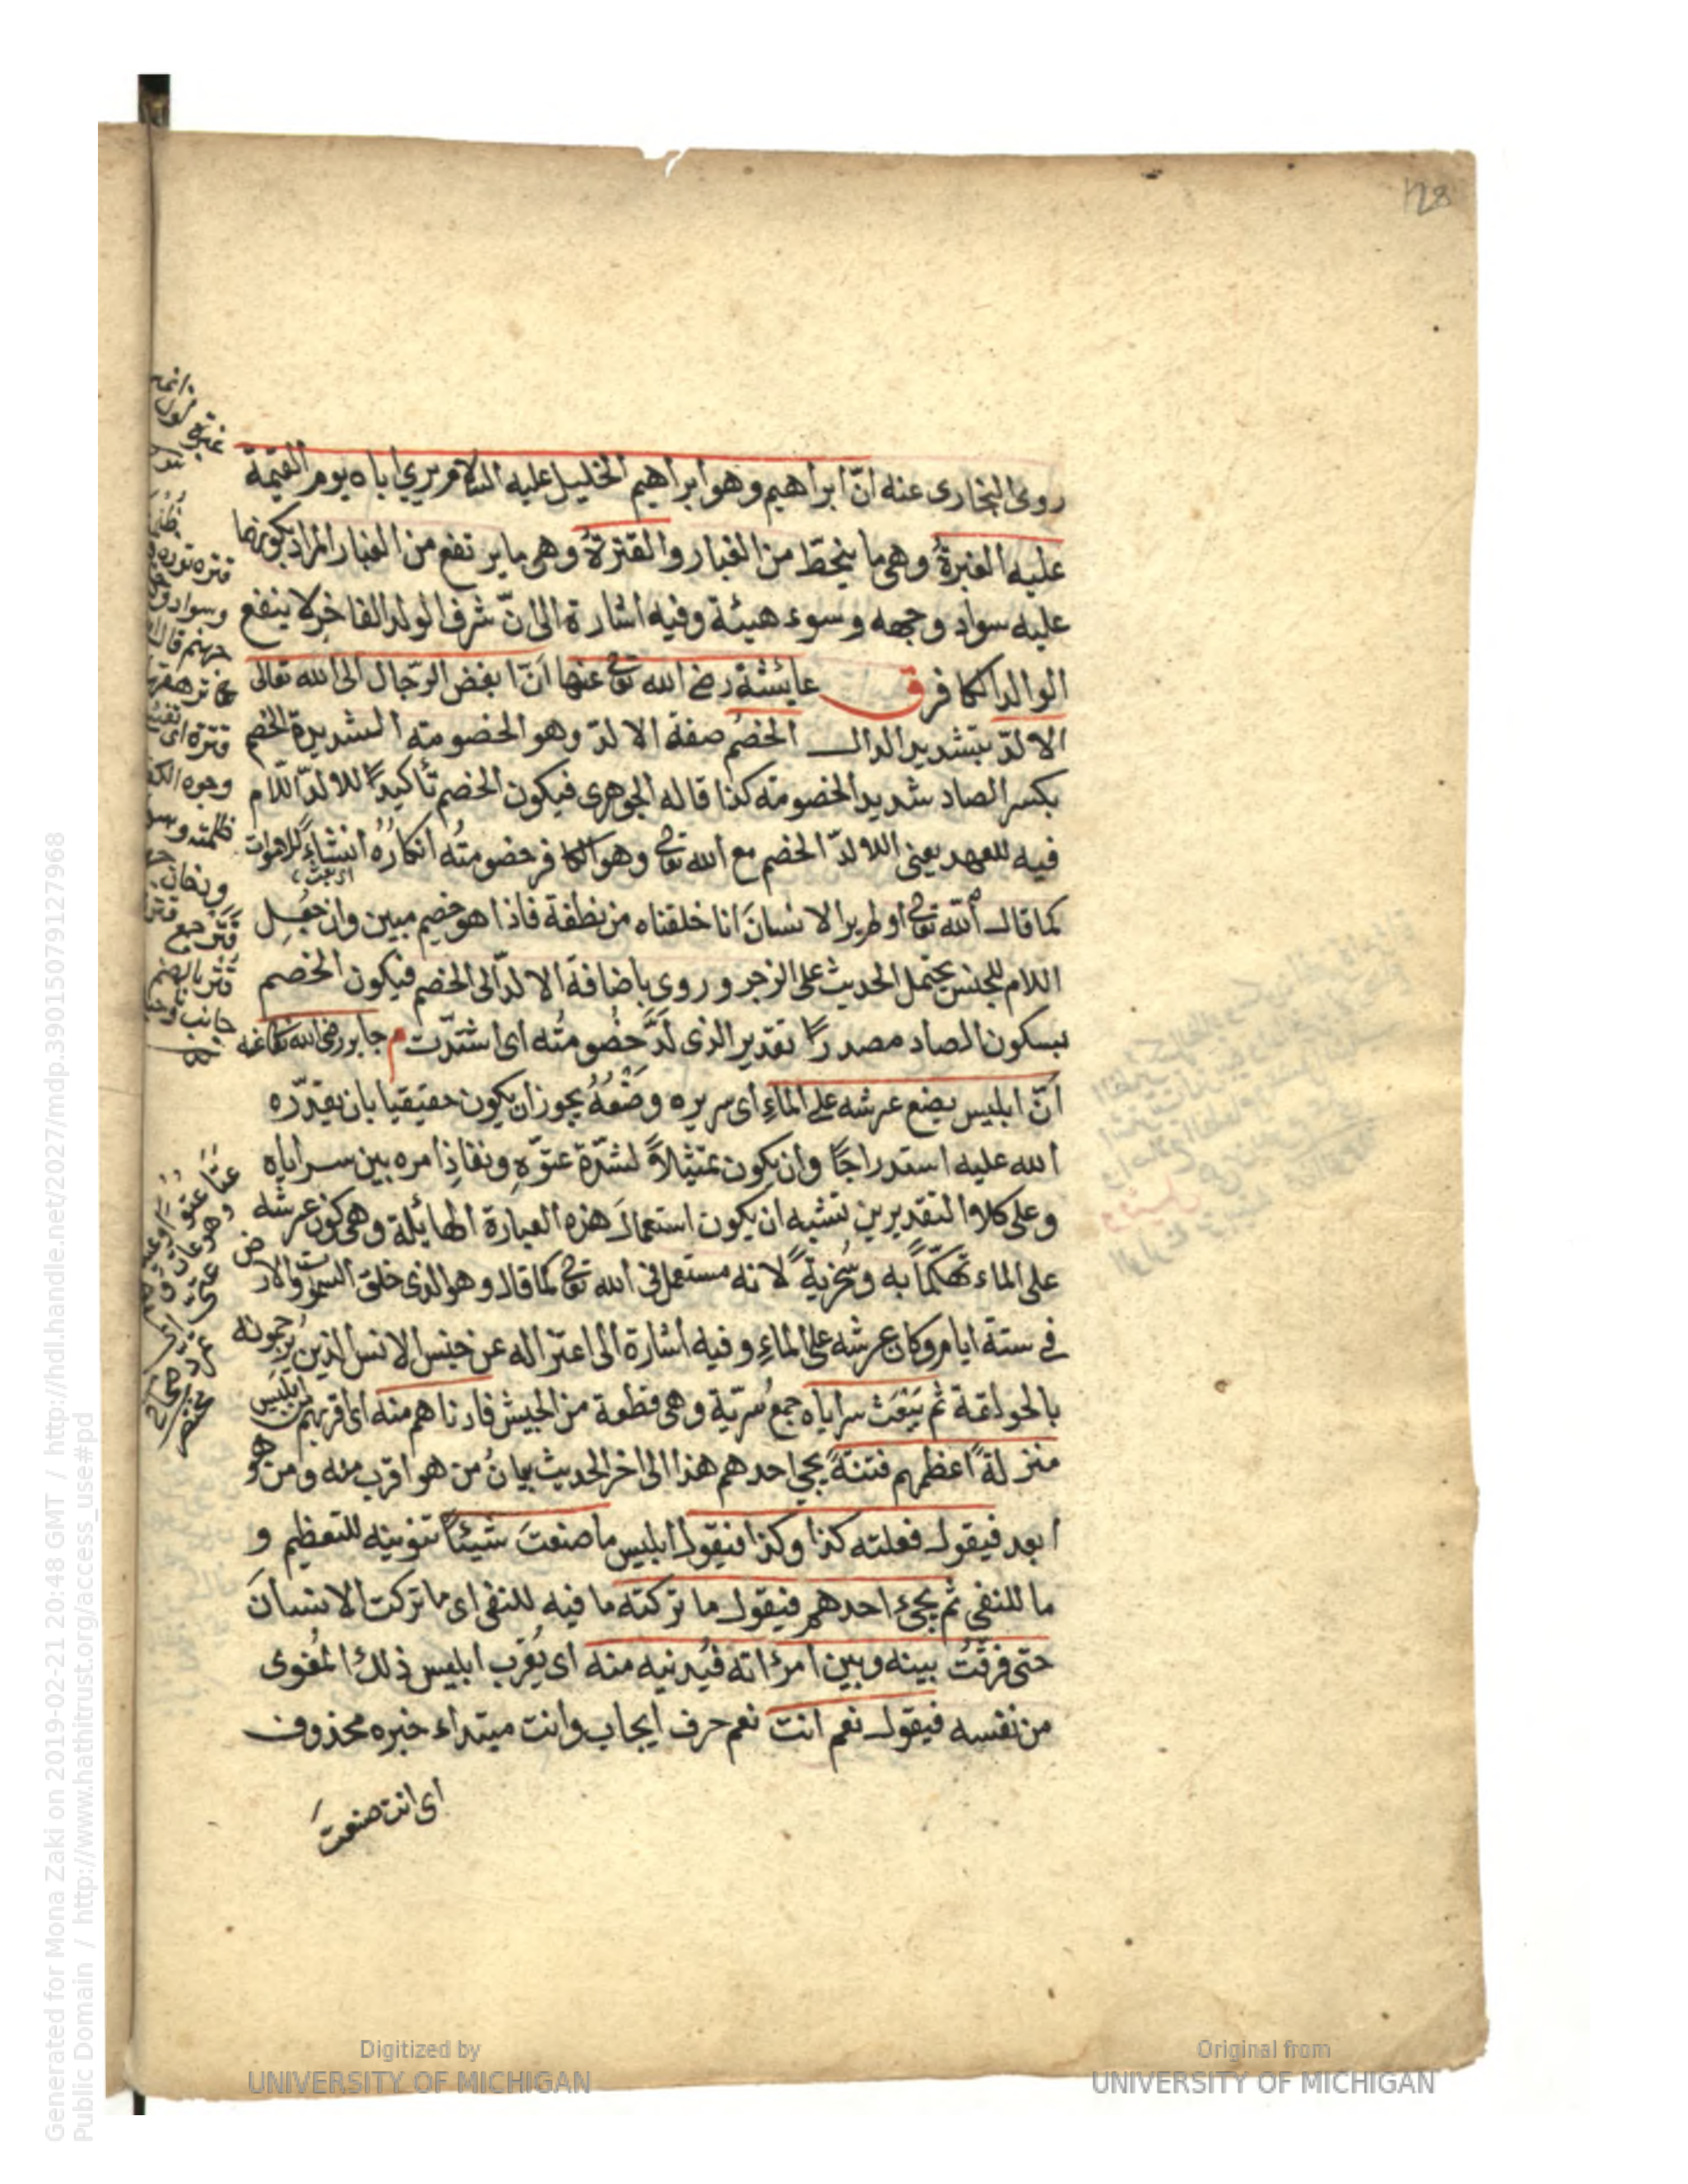 128
روى البخارى عنه انّ ابراهيم وهو ابراهيم الخليل عليه السلام يرى اباه يوم القيمة
عليه الغبرة وهى ما ينحطّ من الغبار والقترة وهى ما يرتفع من الغبار المراد بكونها
عليه سواد وجهه وسوء هيئة وفيه اشارة الى انّ شرف الولد الفاخر لا ينفع
الوالد الكافر ق عايشة رضى الله تعالى عنها انّ ابغض الرّجال الى الله تعالى
الالدّ بتشديد الدال الخصم صفة الالدّ وهو الخصومته الشديدة الخصم
بكسر الصاد شديد الخصومته كذا قاله الجوهرى فيكون الخصم تأكيدًا للالدّ اللّام
فيه للعهد يعنى اللالدّ الخصم مع الله تعالى وهو الكافر خصومتُه انكارُه انشاءً للاموات
كما قال الله تعالى اولم ير الانسانَ انا خلقناه من نطفة فاذا هو خصيم مبين وان جُعِل
اللام للجنس يحتمل الحديث على الزجر وروى باضافة الالدّ الى الخصم فيكون الخصم
بسكون الصاد مصدرًا تقدير الذى لَدَّ خصُومتُه اى اشتدّت م جابر رضى الله تعالى عنه
انّ ابليس يضع عرشه على الماءِ اى سريره وضْعُهُ يجوز ان يكون حقيقيا بان يقدّره
الله عليه استدراجًا وان يكون تمثيلاً لشدّة عتوّهِ ونفاذِ امره بين سراياه
وعلى كلا والتقديرين تشبه ان يكون استعمالَ هذه العبارة الهايلة وهى كون عرشه
على الماء تهكّمًا به وسُخريةً لانه مستعمل فى الله تعالى كما قال وهو الذى خلق السموات والارض
فى ستة ايام وكان عرشه على الماءِ وفيه اشارة الى اعتزاله عن جنس الانس الذين يرجمونه
بالحولقة ثم يَبْعَث سراياه جمعُ سَرّية وهى قطعة من الجيش فادناهم منه اى اقربهم من ابليس
منزلةً اعظمهم فتنةً يجى احدهم هذا الى اخر الحديث بيانُ من هو اقرب منه ومن هو
ابعد فيقول فعلته كذا وكذا فيقول ابليس ما صنعتَ شيئًا تنوينه للتعظيم و
ما للنفى ثم يجىء احدهم فيقول ما تركته ما فيه للنفى اى ما تركت الانسانَ
حتى فرّقتُ بينه وبين امرءاته فيُدنيه منه اى يُقرب ابليس ذلك المُغوى
من نفسه فيقول نعم انت نعم حرف ايجاب وانت مبتداء خبره محذوف
اى انت صنعتَ
Generated for Mona Zaki on 2019-02-21 20:48 GMT / http://hdl.handle.net/2027/mdp.39015079127968
Public Domain / http://www.hathitrust.org/access_use#pd
Digitized by
UNIVERSITY OF MICHIGAN
Original from
UNIVERSITY OF MICHIGAN